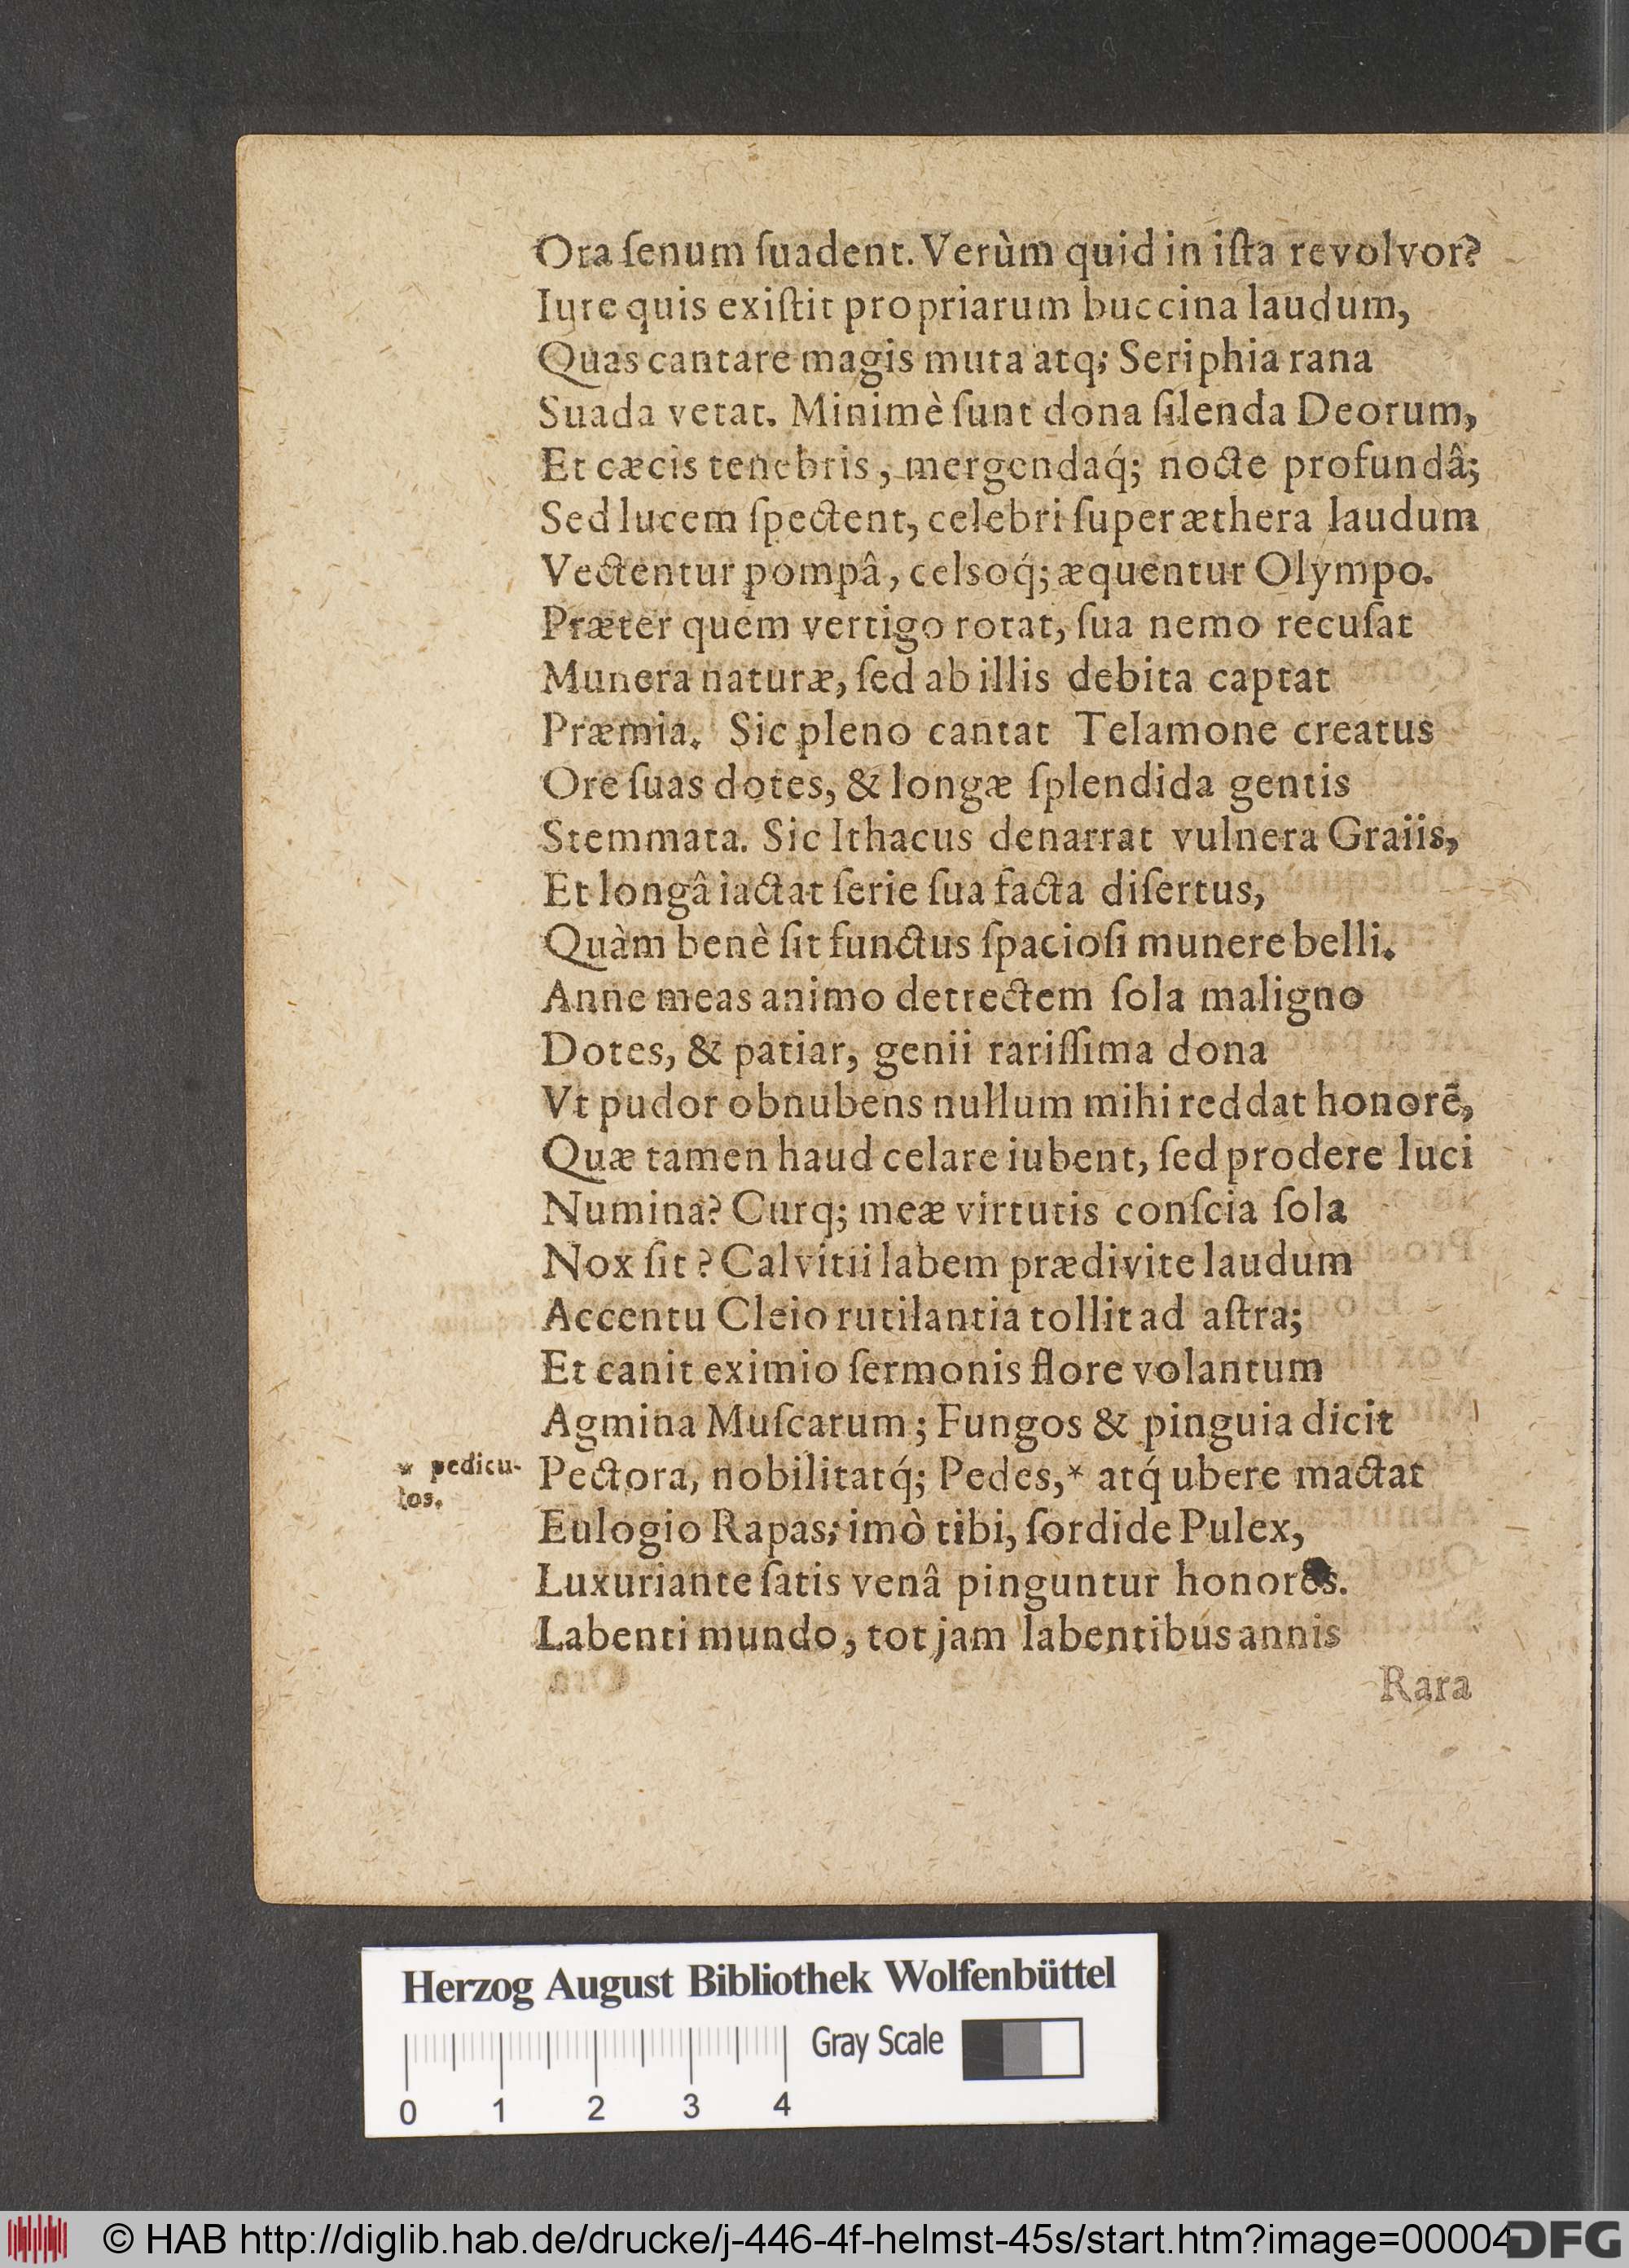 Ora ſenum ſuadent. Verùm quid in iſta revolvor?
Iure quis exiſtit propriarum buccina laudum,
Quas cantare magis muta atq; Seriphia rana
Suada vetat. Minimè ſunt dona ſilenda Deorum,
Et cæcis tenebris, mergendaq́; nocte profundâ;
Sed lucem ſpectent, celebri ſuper æthera laudum
Vectentur pompâ, celsoq́; æquentur Olympo.
Præter quem vertigo rotat, ſua nemo recuſat
Munera naturæ, ſed ab illis debita captat
Præmia. Sic pleno cantat Telamone creatus
Ore ſuas dotes, & longæ ſplendida gentis
Stemmata. Sic Ithacus denarrat vulnera Graiis,
Et longâ iactat ſerie ſua facta diſertus,
Quàm benè ſit functus ſpacioſi munere belli.
Anne meas animo detrectem ſola maligno
Dotes, & patiar, genii rariſſima dona
Vt pudor obnubens nullum mihi reddat honorē,
Quæ tamen haud celare iubent, ſed prodere luci
Numina? Curq; meæ virtutis conſcia ſola
Nox ſit? Calvitii labem prædivite laudum
Accentu Cleio rutilantia tollit ad aſtra;
Et canit eximio ſermonis flore volantum
Agmina Muſcarum; Fungos & pinguia dicit
* pedicu-
los.
Pectora, nobilitatq́; Pedes,* atq́ ubere mactat
Eulogio Rapas; imò tibi, ſordide Pulex,
Luxuriante ſatis venâ pinguntur honores.
Labenti mundo, tot jam labentibus annis
Rara
Herzog August Bibliothek Wolfenbüttel
Gray Scale
0 1 2 3 4
© HAB http://diglib.hab.de/drucke/j-446-4f-helmst-45s/start.htm?image=00004
DFG